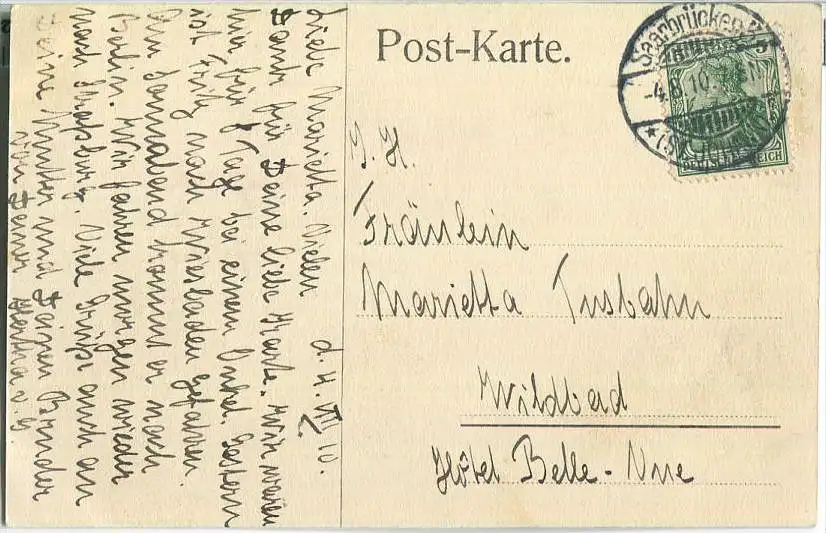 Post-Karte.
Saarbrücken
-4.8.10.
REICH
d. 4. VIII 10.
Liebe Marietta. Vielen
Dank für Deine liebe Karte. Wir waren
hier für Tage bei einem Onkel. Gestern
ist Fritz nach Wiesbaden gefahren.
Am Sonnabend kommt er nach
Berlin. Wir fahren morgen wieder
nach Straßburg. Viele Grüße auch an
Deine Mutter und Deinen Bruder
von Deiner
Fräulein
Marietta Tusbahn
Wildbad
Hôtel Belle-Vue